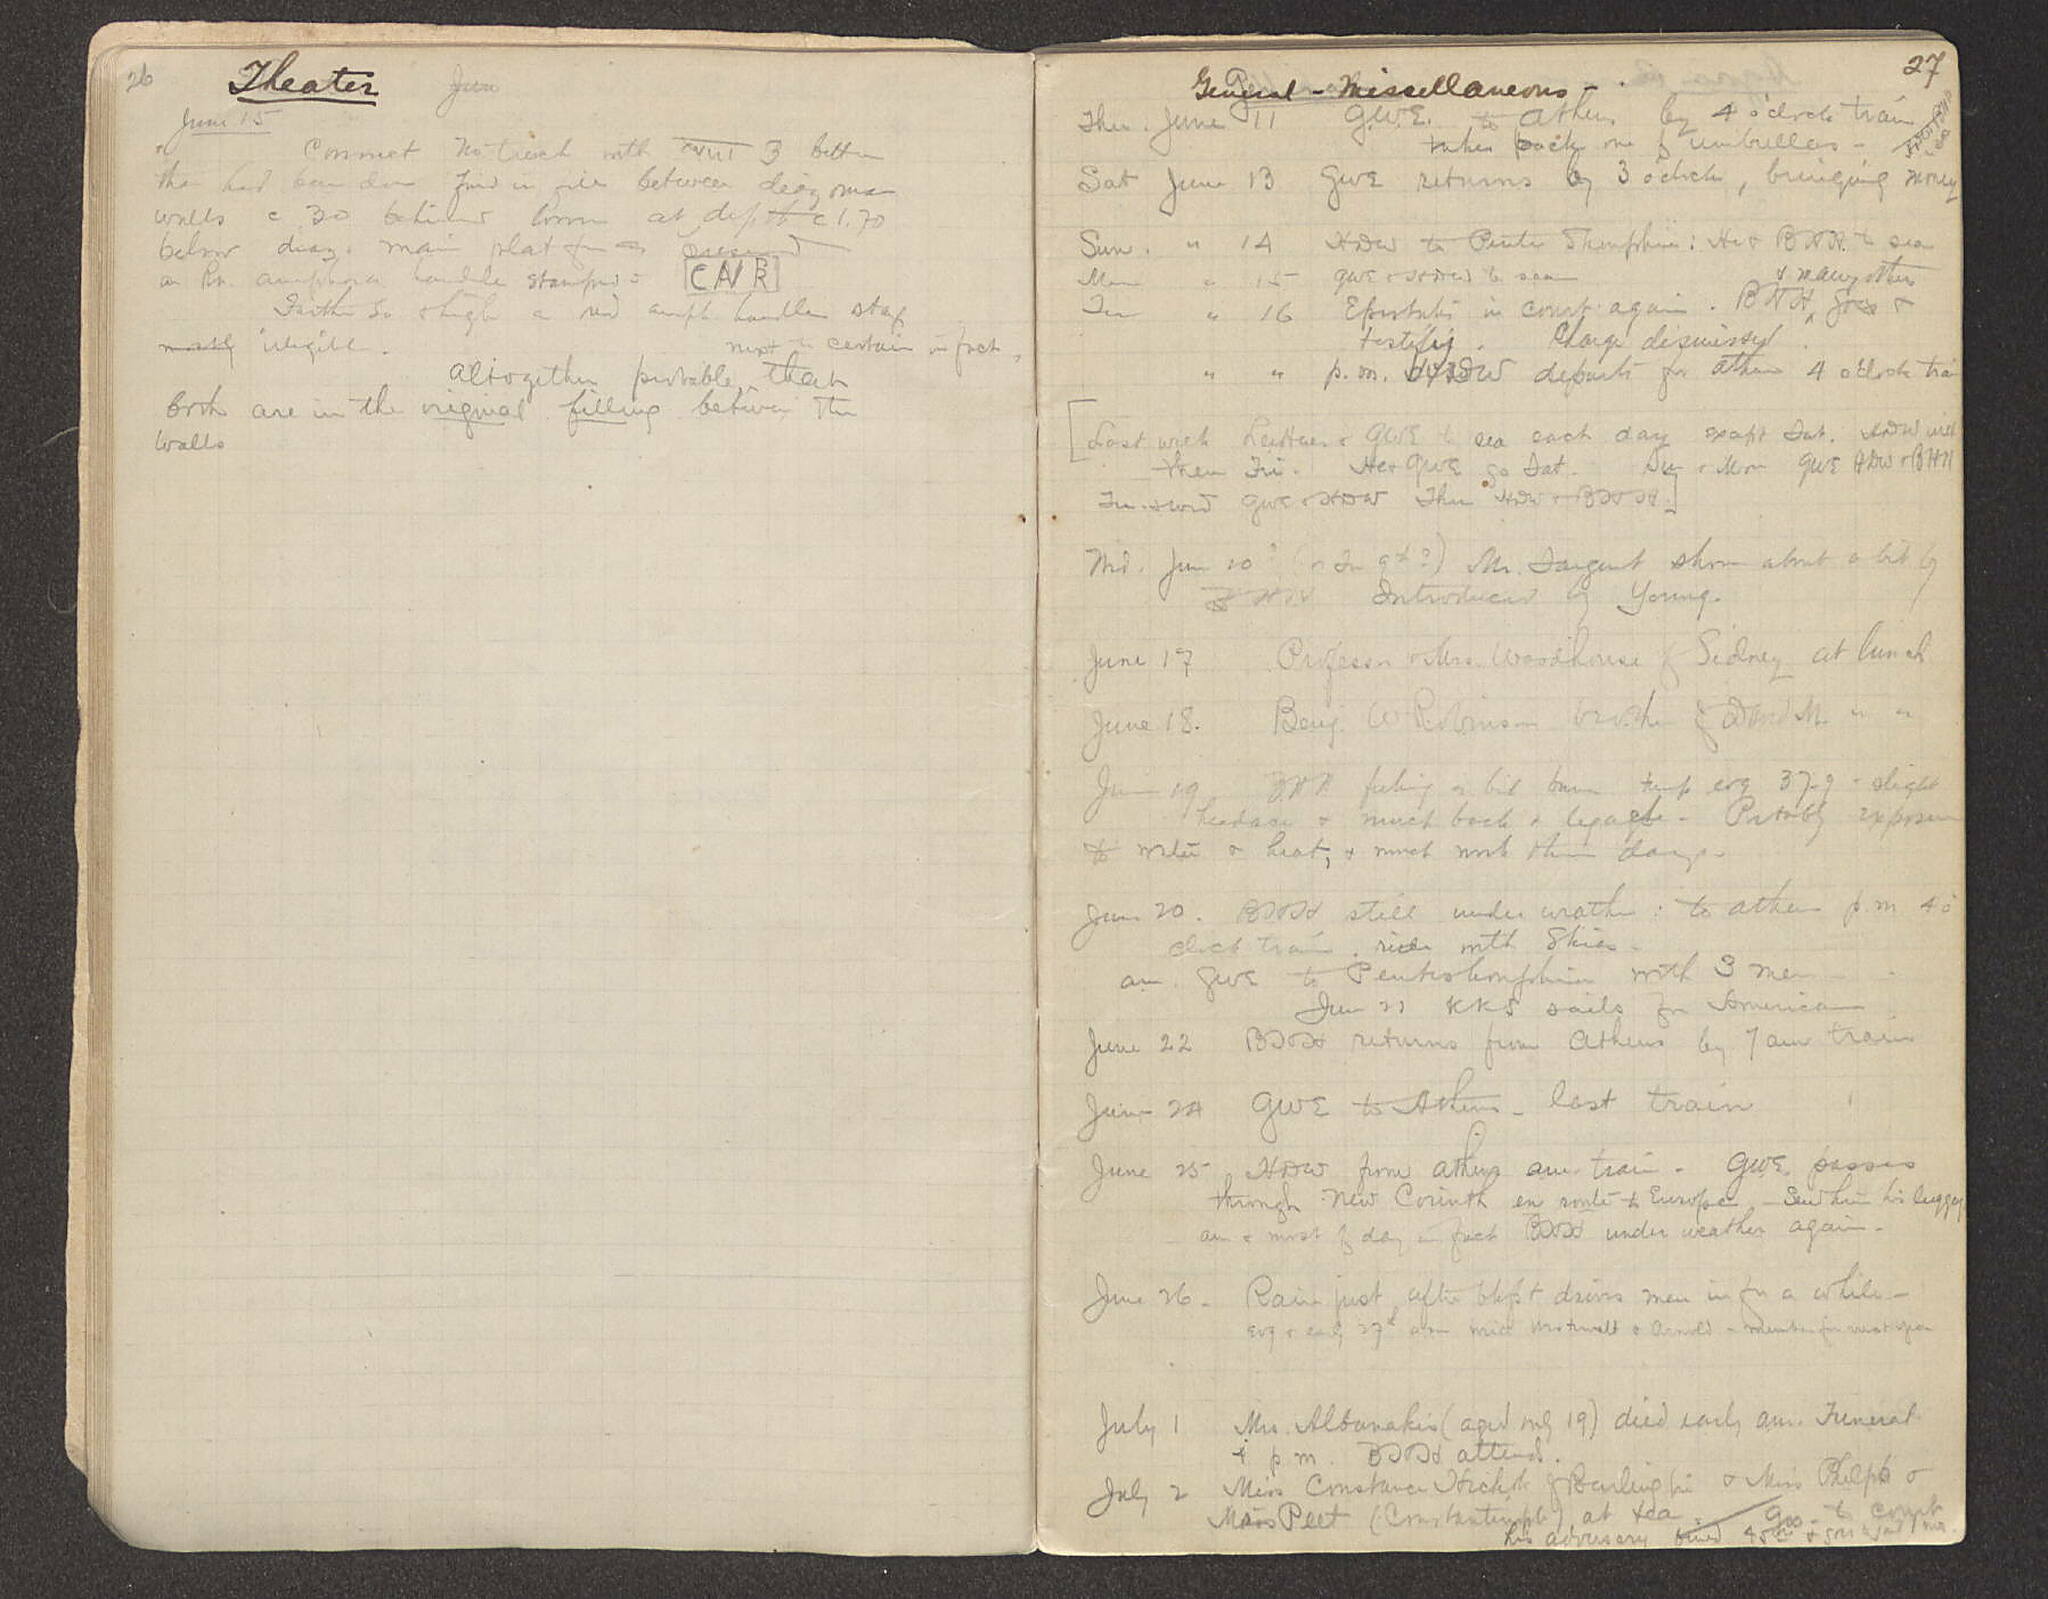 26
Theater
June 15
Connect No trench with XVIII 3 better
than had been done Find in fill between diazoma
walls c 30 behind at depth c 1.70
below diaz. main platform
a Rn. amphora handle stamped = CNR
a red amph handle stamp
mostly illegible. next to certain in fact,
altogether probable that
both are in the original filling between the
walls
27
General - Miscellaneous -
Thu. June 11 G.W.E. to Athens by 4 o'clock train
takes back one of umbrellas -
Sat June 13 GWE returns by 3 o'clock, bringing money
Sun. " 14 HDW to Pente Skouphia: He & BHH to sea
Mon " 15 GWE & HDW to sea
Tu " 16 Epistates in court again. BHH & many others go &
testify. Charge dismissed.
" " p.m. HDW departs for Athens 4 o'clock train
[Last week & GWE to sea each day except Sat. HDW with
them Fri. He & GWE go Sat. Sun & Mon GWE HDW & BHH
Tu. & Wed GWE & HDW Thu HDW & BHH]
Wed. June 10? (or Tu 9th?) Mr. Sargent shown about a bit by
BHH Introduced by Young.
June 17 Professor & Mrs. Woodhouse of Sidney at lunch
June 18. Benj. W Robinson brother of David M. " "
June 19 BHH feeling a bit temp evg 37.9 - slight
headache & much back & legache - Probably exposure
to water & heat, & much work these days -
June 20. BHH still under weather: to Athens p.m 4 o'
clock train. ride with Skias -
am. GWE to Penteskouphia with 3 men
June 21 KKS sails for America
June 22 BHH returns from Athens by 7 am train
June 24 GWE to Athens - last train
June 25 HDW from Athens am. train - GWE. passes
through New Corinth en route to Europe - Send him his luggage
am & most of day in fact BHH under weather again -
June 26 - Rain just after bkfst drives men in for a while -
evg & early 27th am
July 1 Mrs. Albanakis (aged only 19) died early am. Funeral
4 p m. BHH attends.
July 2 Miss Constance of & Miss Phelps &
Miss Peet (Constantinople) at tea. Geo. to court
his adversary fined